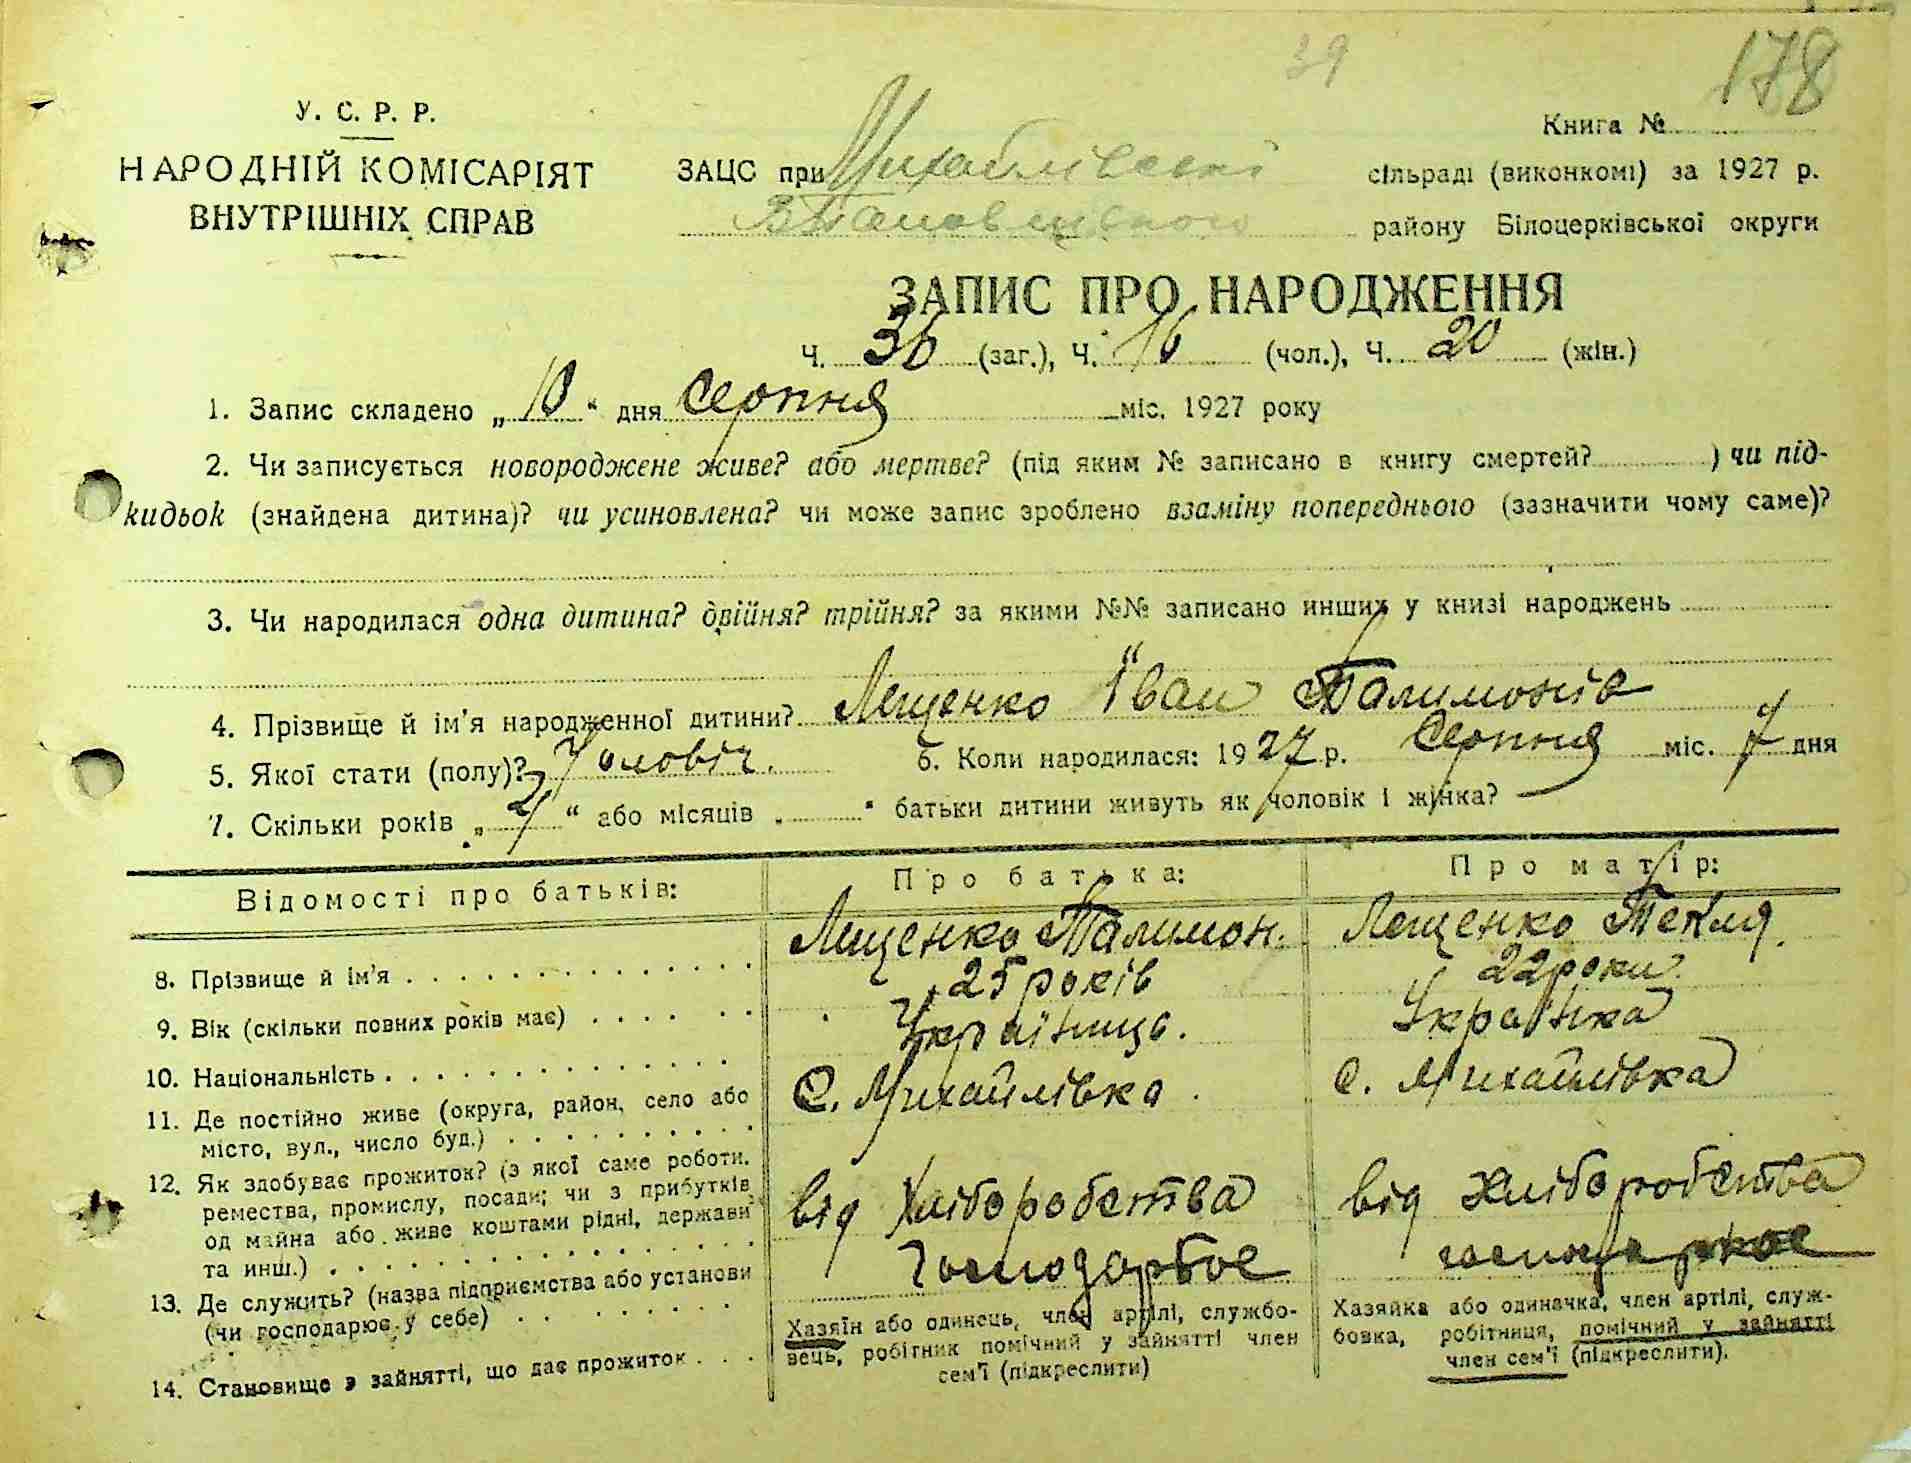 39
178
У. С. Р. Р.
НАРОДНІЙ КОМІСАРІЯТ
ВНУТРІШНІХ СПРАВ
Книга №
ЗАЦС при Михайлівскі сільраді (виконкомі) за 1927 р.
району Білоцерківської округи
ЗАПИС ПРО НАРОДЖЕННЯ
Ч. 36 (заг.), Ч. 16 (чол.), Ч. 20 (жін.)
1. Запис складено „10“ дня Серпня міс. 1927 року
2. Чи записується новороджене живе? або мертве? (під яким № записано в книгу смертей? ) чи під-
кидьок (знайдена дитина)? чи усиновлена? чи може запис зроблено взаміну попереднього (зазначити чому саме)?
3. Чи народилася одна дитина? двійня? трійня? за якими №№ записано инших у книзі народжень
4. Прізвище й ім'я народженної дитини? Лещенко Іван Палимонів
5. Якої стати (полу)? Чоловіч. 6. Коли народилася: 1927 р. Серпня міс. 7 дня
7. Скільки років „2“ або місяців „ “ батьки дитини живуть як чоловік і жінка? —
Відомості про батьків: Про батька: Про матір:
8. Прізвище й ім'я Лещенко Палимон. Лещенко Текля.
9. Вік (скільки повних років має) 25 років 22 роки
10. Національність Українець. Українка
11. Де постійно живе (округа, район, село або С. Михайлівка с. Михайлівка
місто, вул., число буд.)
12. Як здобуває прожиток? (з якої саме роботи,
ремества, промислу, посади; чи з прибутків від Хліборобства від хліборобства
од майна або живе коштами рідні, держави
та инш.)
13. Де служить? (назва підприємства або установи Господарвое
(чи господарює у себе)
14. Становище в зайнятті, що дає прожиток
Хазяїн або одинець, член артілі, службо-
вець, робітник помічний у зайнятті член
сем'ї (підкреслити)
Хазяйка або одиначка, член артілі, служ-
бовка, робітниця, помічний у зайнятті
член сем'ї (підкреслити).